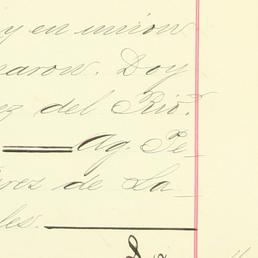 y en unión
naron. Doy
ez del Rio.
Ag. Pe-
rez de La-
les.